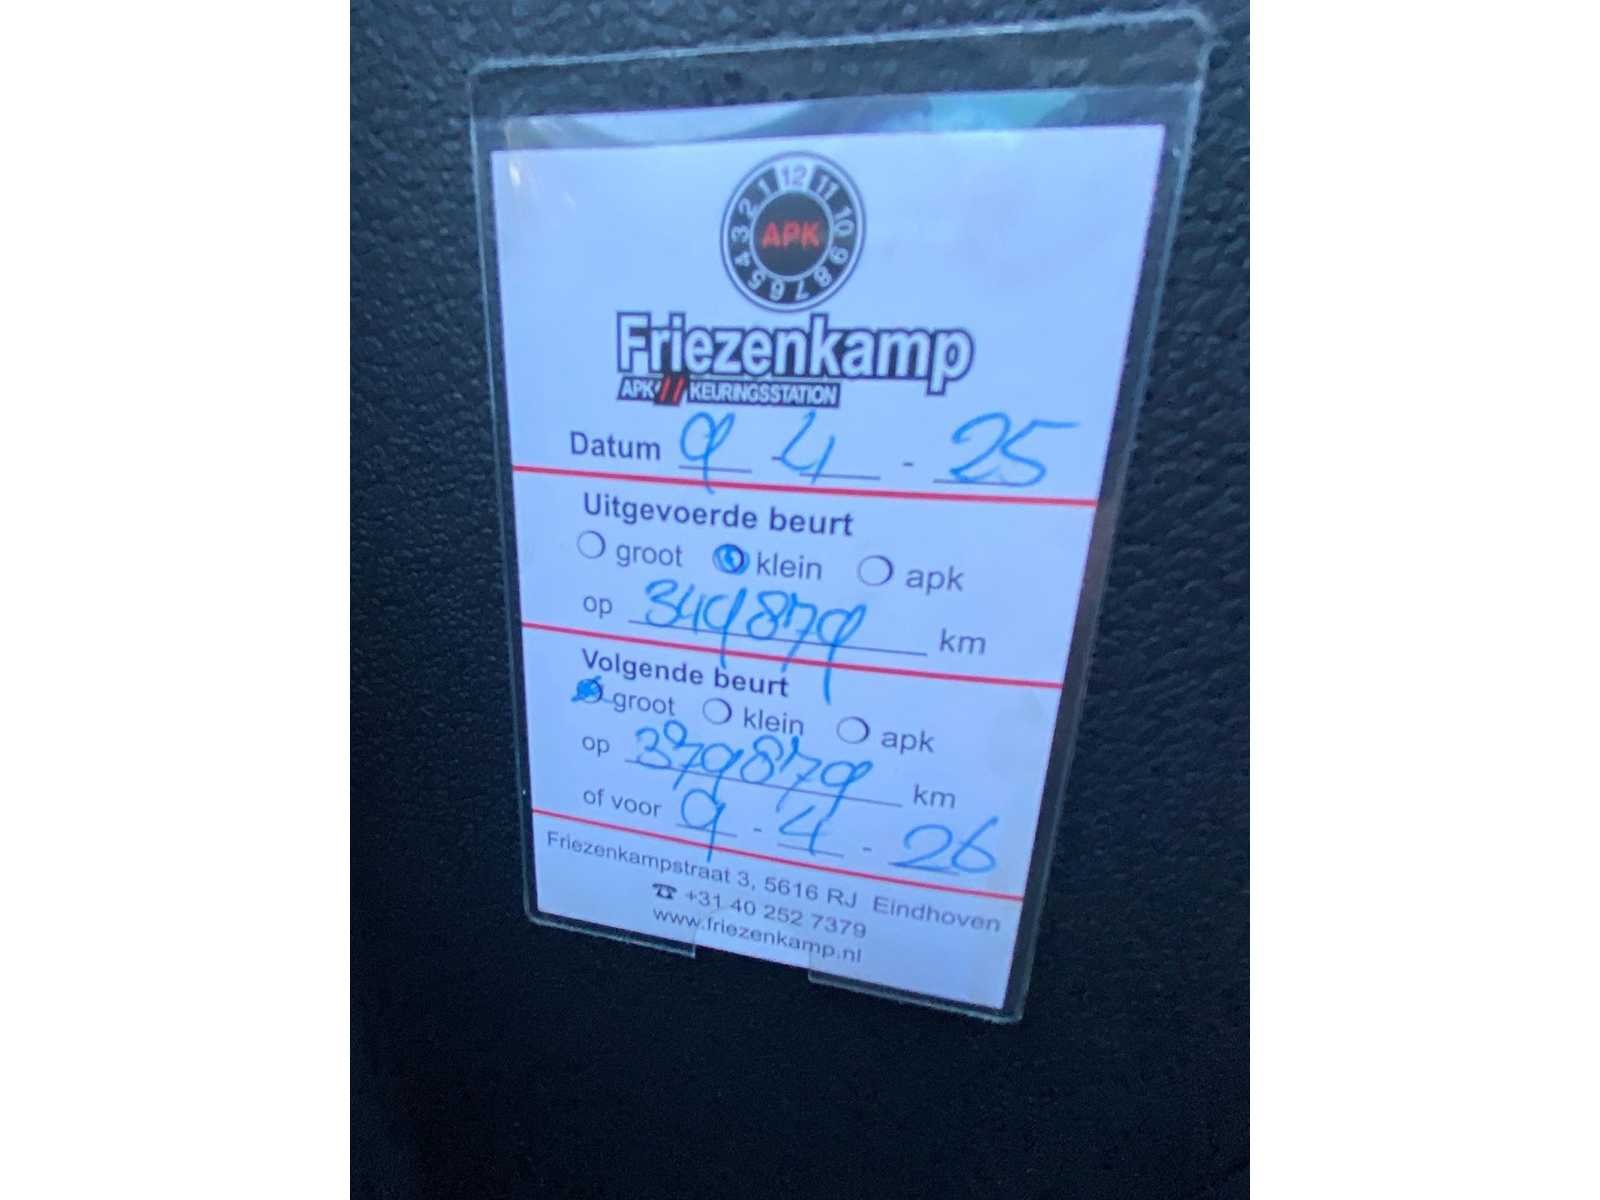 12 11 10 9 8 7 6 5 4 3 2 1
APK
Friezenkamp
APK // KEURINGSSTATION
Datum 9 - 4 - 25
Uitgevoerde beurt
groot klein apk
op 349879 km
Volgende beurt
groot klein apk
op 379879 km
of voor 9 - 4 - 26
Friezenkampstraat 3, 5616 RJ Eindhoven
☎ +31 40 252 7379
www.friezenkamp.nl